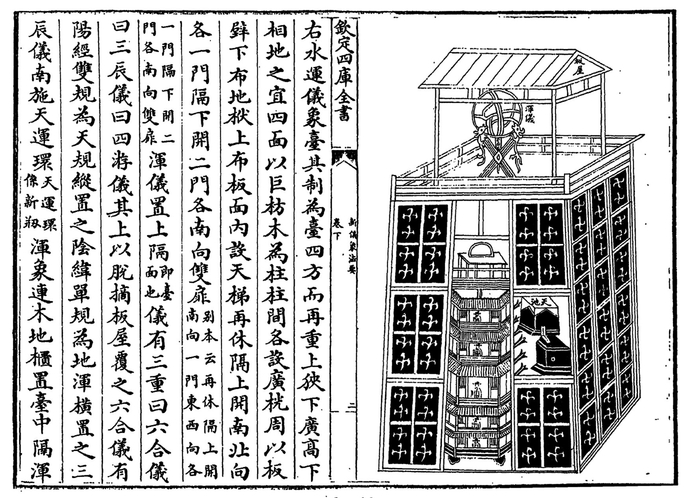 板屋
渾儀
天池
欽定四庫全書
新儀象法要
卷下
二
右水運儀象臺其制為臺四方而再重上狹下廣高下
相地之宜四面以巨枋木為柱柱間各設廣桄周以板
壁下布地栿上布板面内設天梯再休隔上開南北向
各一門隔下開二門各南向雙扉別本云再休隔上開南向一門東西向各
一門隔下開二門各南向雙扉渾儀置上隔即臺面也儀有三重曰六合儀
曰三辰儀曰四游儀其上以脫摘板屋覆之六合儀有
陽經雙規為天規縱置之陰緯單規為地渾橫置之三
辰儀南施天運環天運環係新剏渾象連木地櫃置臺中隔渾